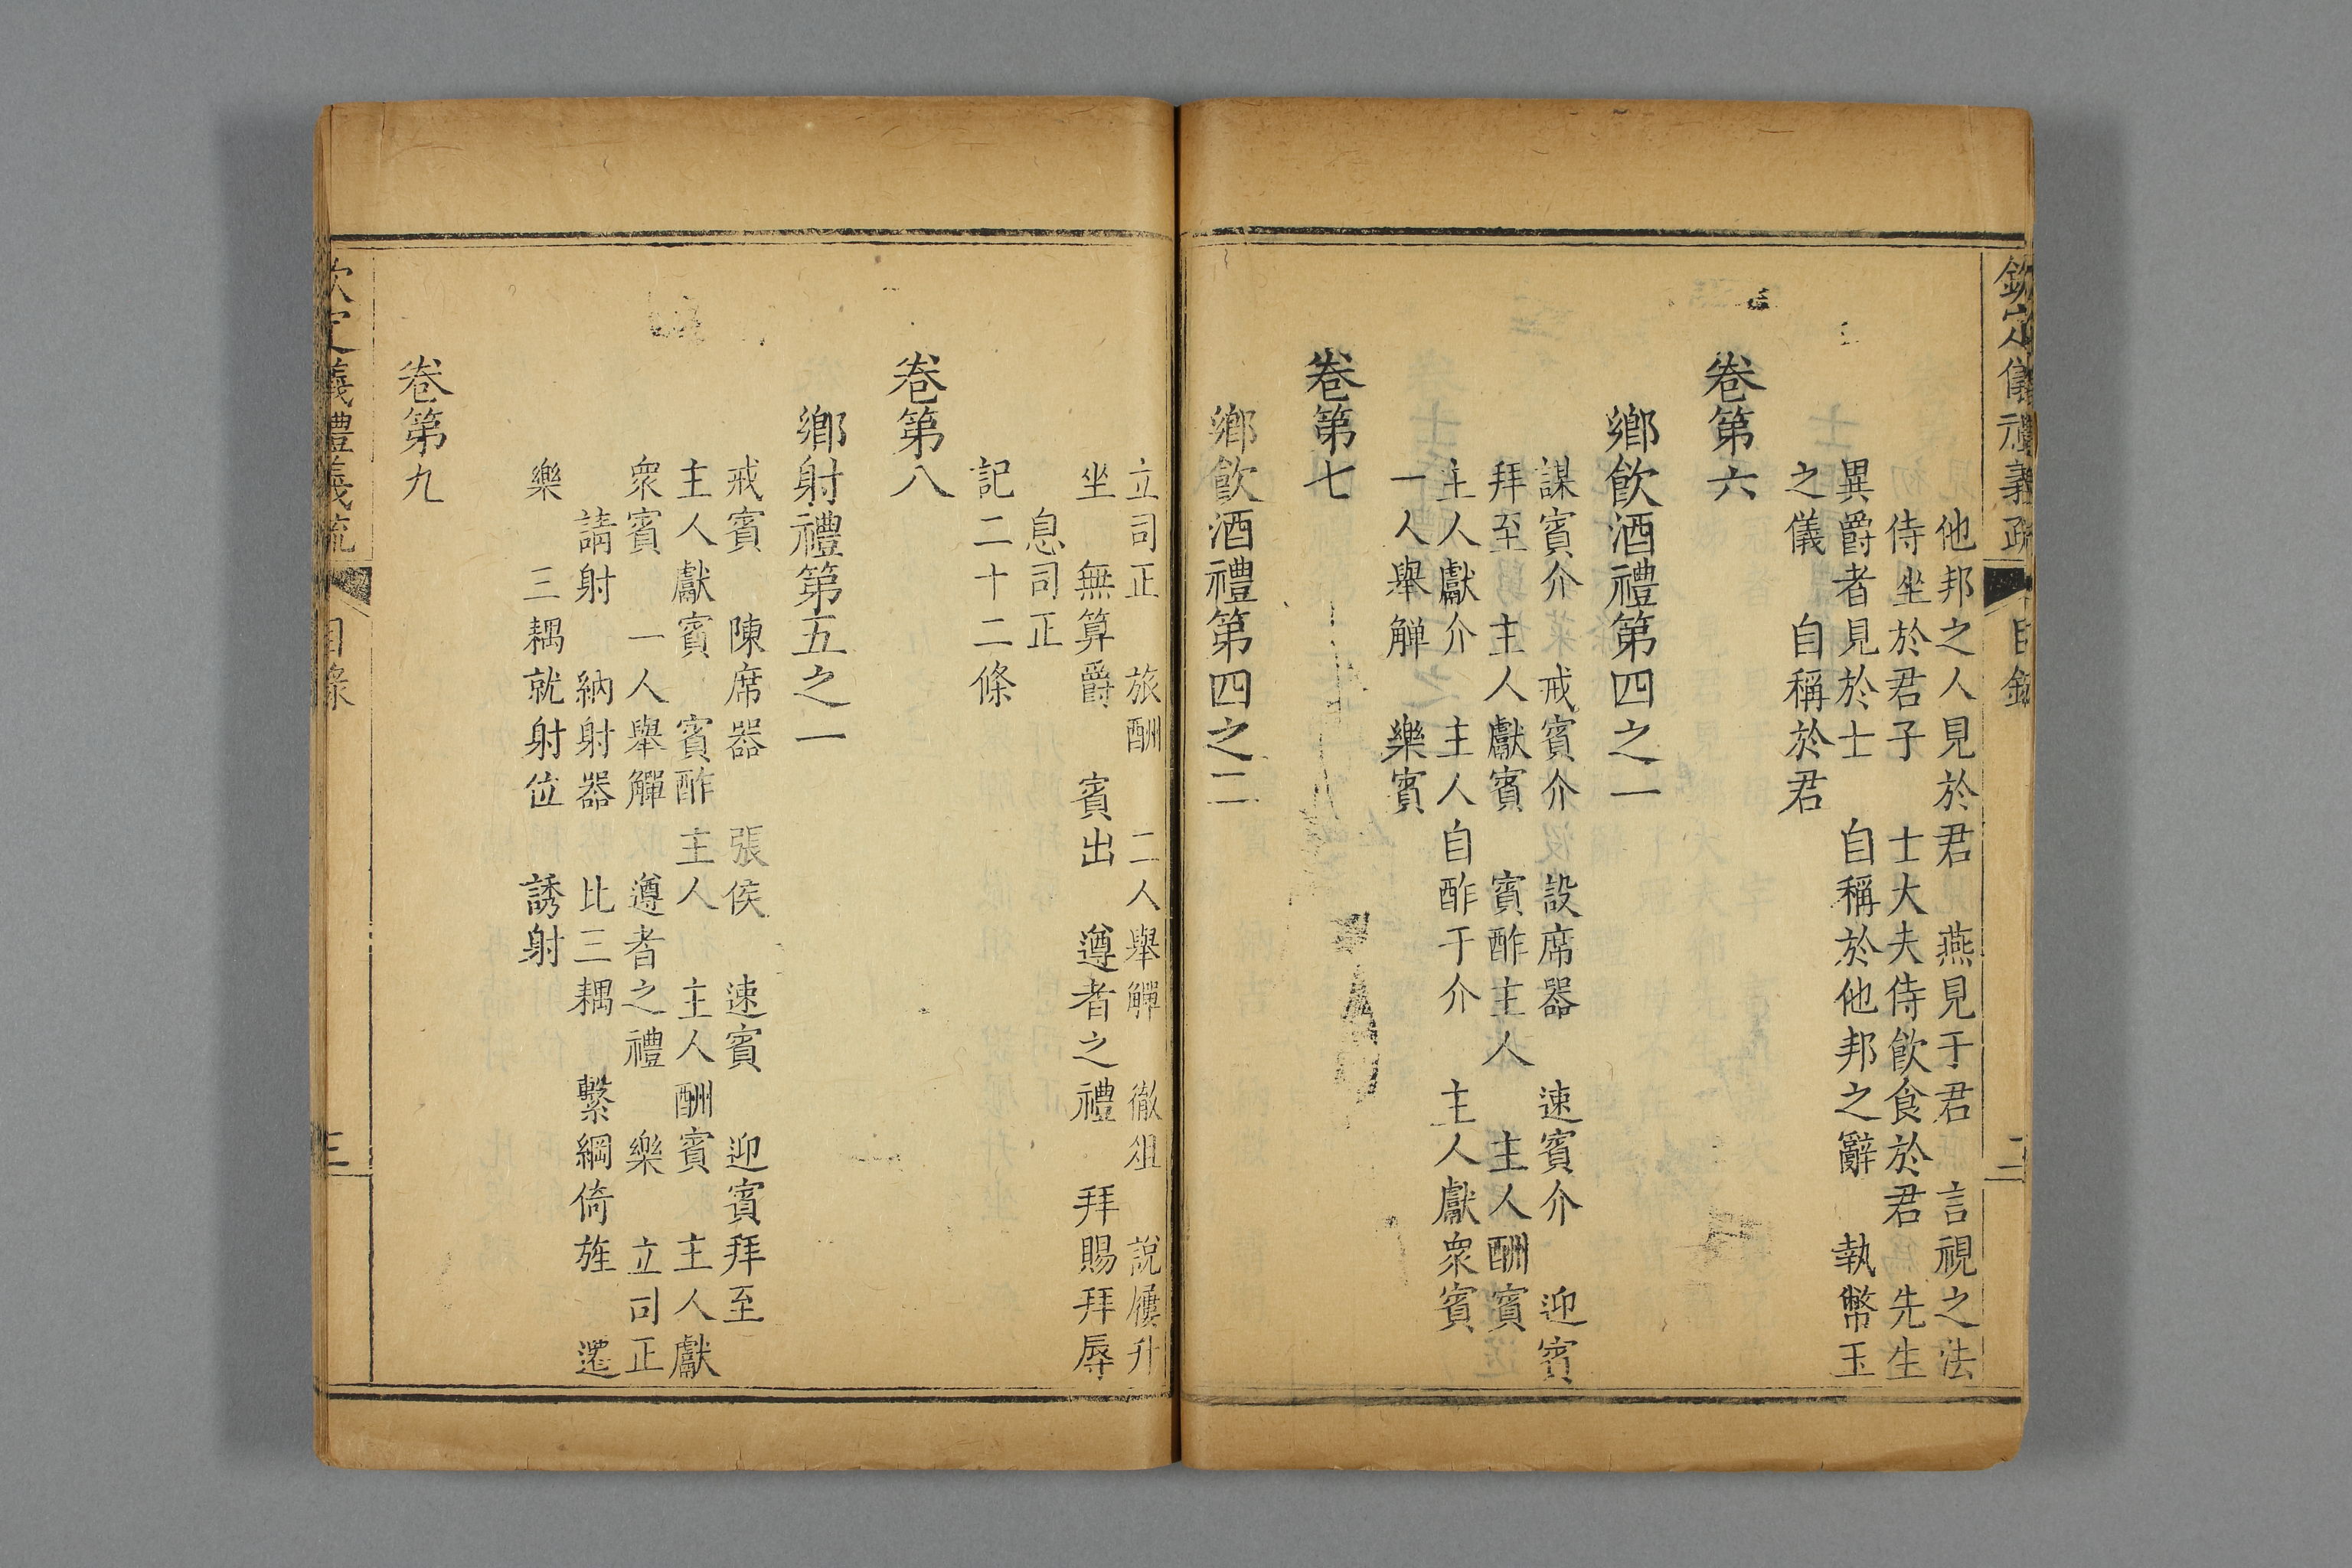 欽定儀禮義疏 目錄 二
他邦之人見於君 燕見于君 言視之法
侍坐於君子 士大夫侍飲食於君 先生
異爵者見於士 自稱於他邦之辭 執幣玉
之儀 自稱於君
卷第六
鄉飲酒禮第四之一
謀賓介 戒賓介 設席器 速賓介 迎賓
拜至 主人獻賓 賓酢主人 主人酬賓
主人獻介 主人自酢于介 主人獻衆賓
一人舉觶 樂賓
卷第七
鄉飲酒禮第四之二
立司正 旅酬 二人舉觶 徹俎 說屨升
坐 無算爵 賓出 遵者之禮 拜賜拜辱
息司正
記二十二條
卷第八
鄉射禮第五之一
戒賓 陳席器 張侯 速賓 迎賓拜至
主人獻賓 賓酢主人 主人酬賓 主人獻
衆賓 一人舉觶 遵者之禮 樂 立司正
請射 納射器 比三耦 繫綱倚旌 遷
樂 三耦就射位 誘射
卷第九
欽定儀禮義疏 目錄 三